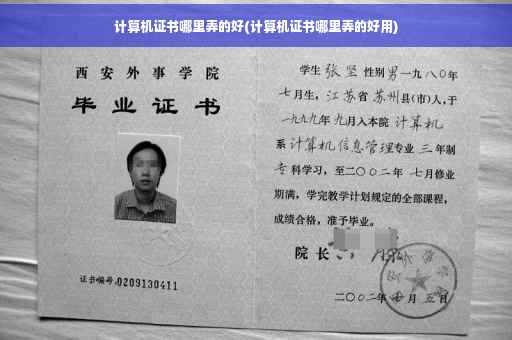 计算机证书哪里弄的好(计算机证书哪里弄的好用)
西安外事学院
毕业证书
证书编号:0209130411
学生 张坚 性别 男 一九八〇年
七月生, 江苏省 苏州县(市)人,于
一九九九年 九月入本院 计算机
系 计算机信息管理专业 三 年制
专科学习,至二〇〇二年 七月修业
期满,学完教学计划规定的全部课程,
成绩合格,准予毕业。
院长
二〇〇二年 月 五日